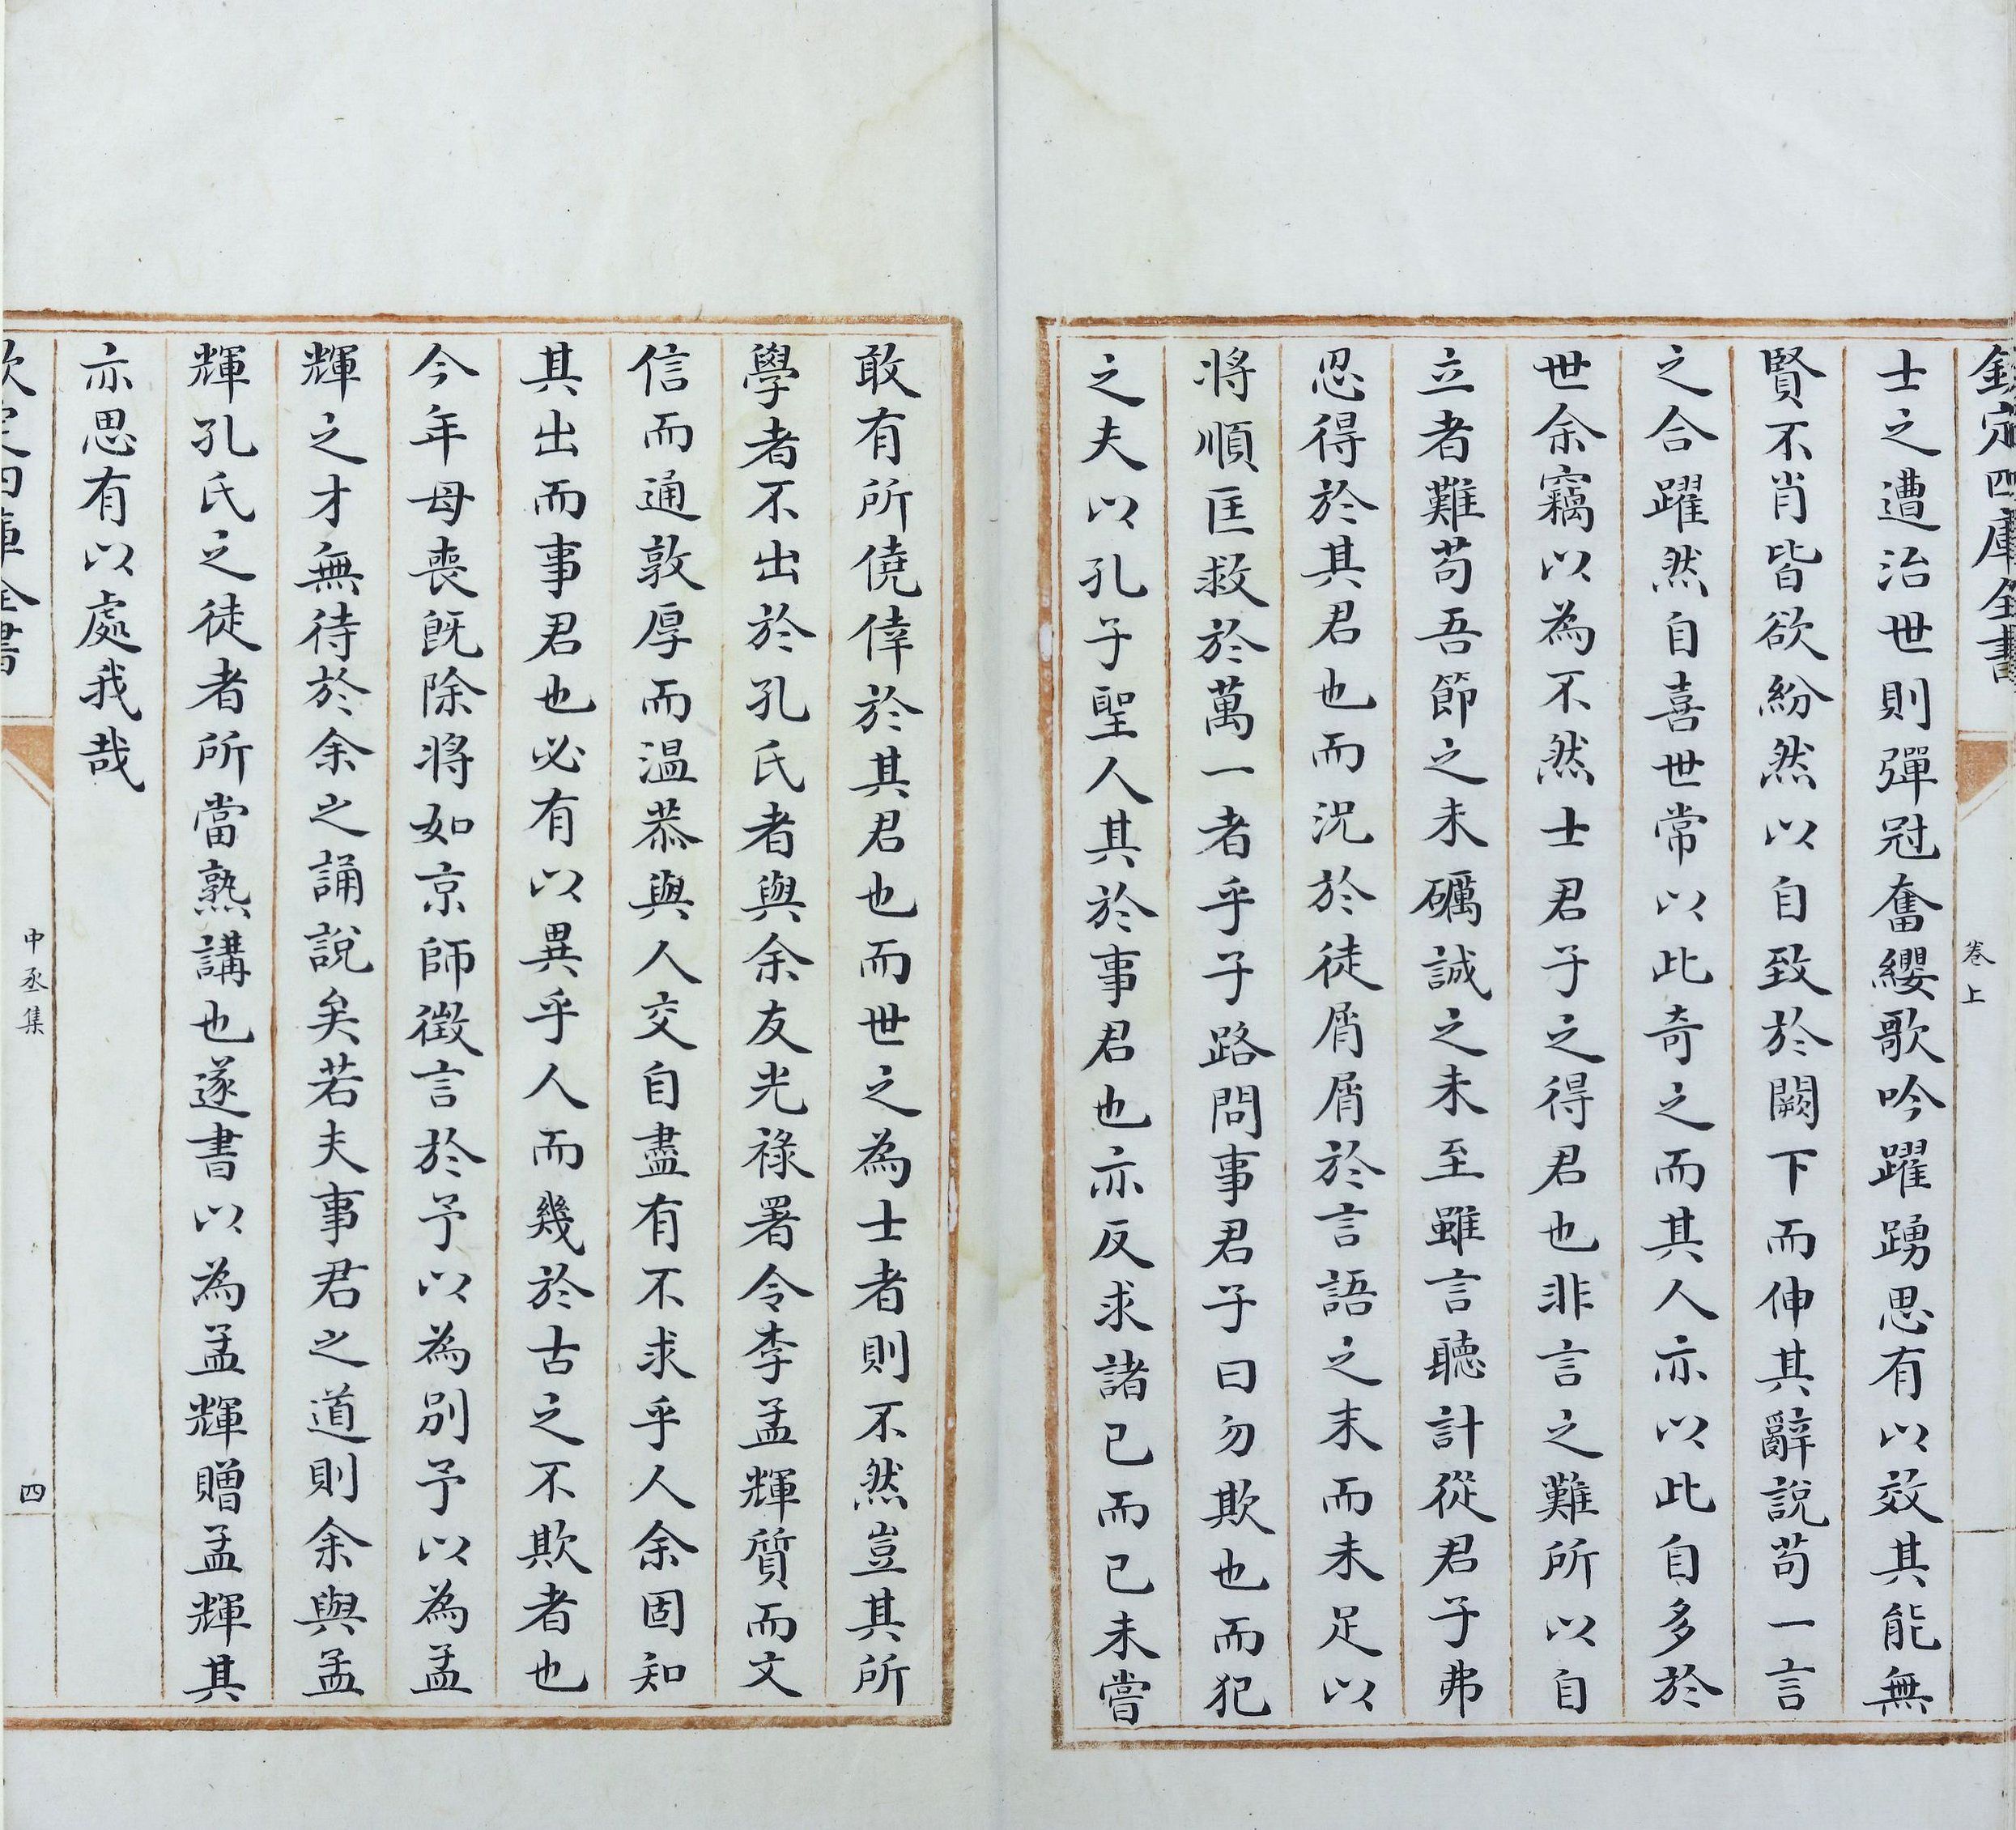 欽定四庫全書
卷上
士之遭治世則彈冠奮纓歌吟躍踴思有以效其能無
賢不肖皆欲紛然以自致於闕下而伸其辭說苟一言
之合躍然自喜世常以此奇之而其人亦以此自多於
世余竊以為不然士君子之得君也非言之難所以自
立者難苟吾節之未礪誠之未至雖言聽計從君子弗
忍得於其君也而況於徒屑屑於言語之末而未足以
將順匡救於萬一者乎子路問事君子曰勿欺也而犯
之夫以孔子聖人其於事君也亦反求諸已而已未嘗
敢有所僥倖於其君也而世之為士者則不然豈其所
學者不出於孔氏者與余友光祿署令李孟輝質而文
信而通敦厚而温恭與人交自盡有不求乎人余固知
其出而事君也必有以異乎人而幾於古之不欺者也
今年母喪既除將如京師徵言於予以為別予以為孟
輝之才無待於余之誦說矣若夫事君之道則余與孟
輝孔氏之徒者所當熟講也遂書以為孟輝贈孟輝其
亦思有以處我哉
欽定四庫全書
中丞集
四